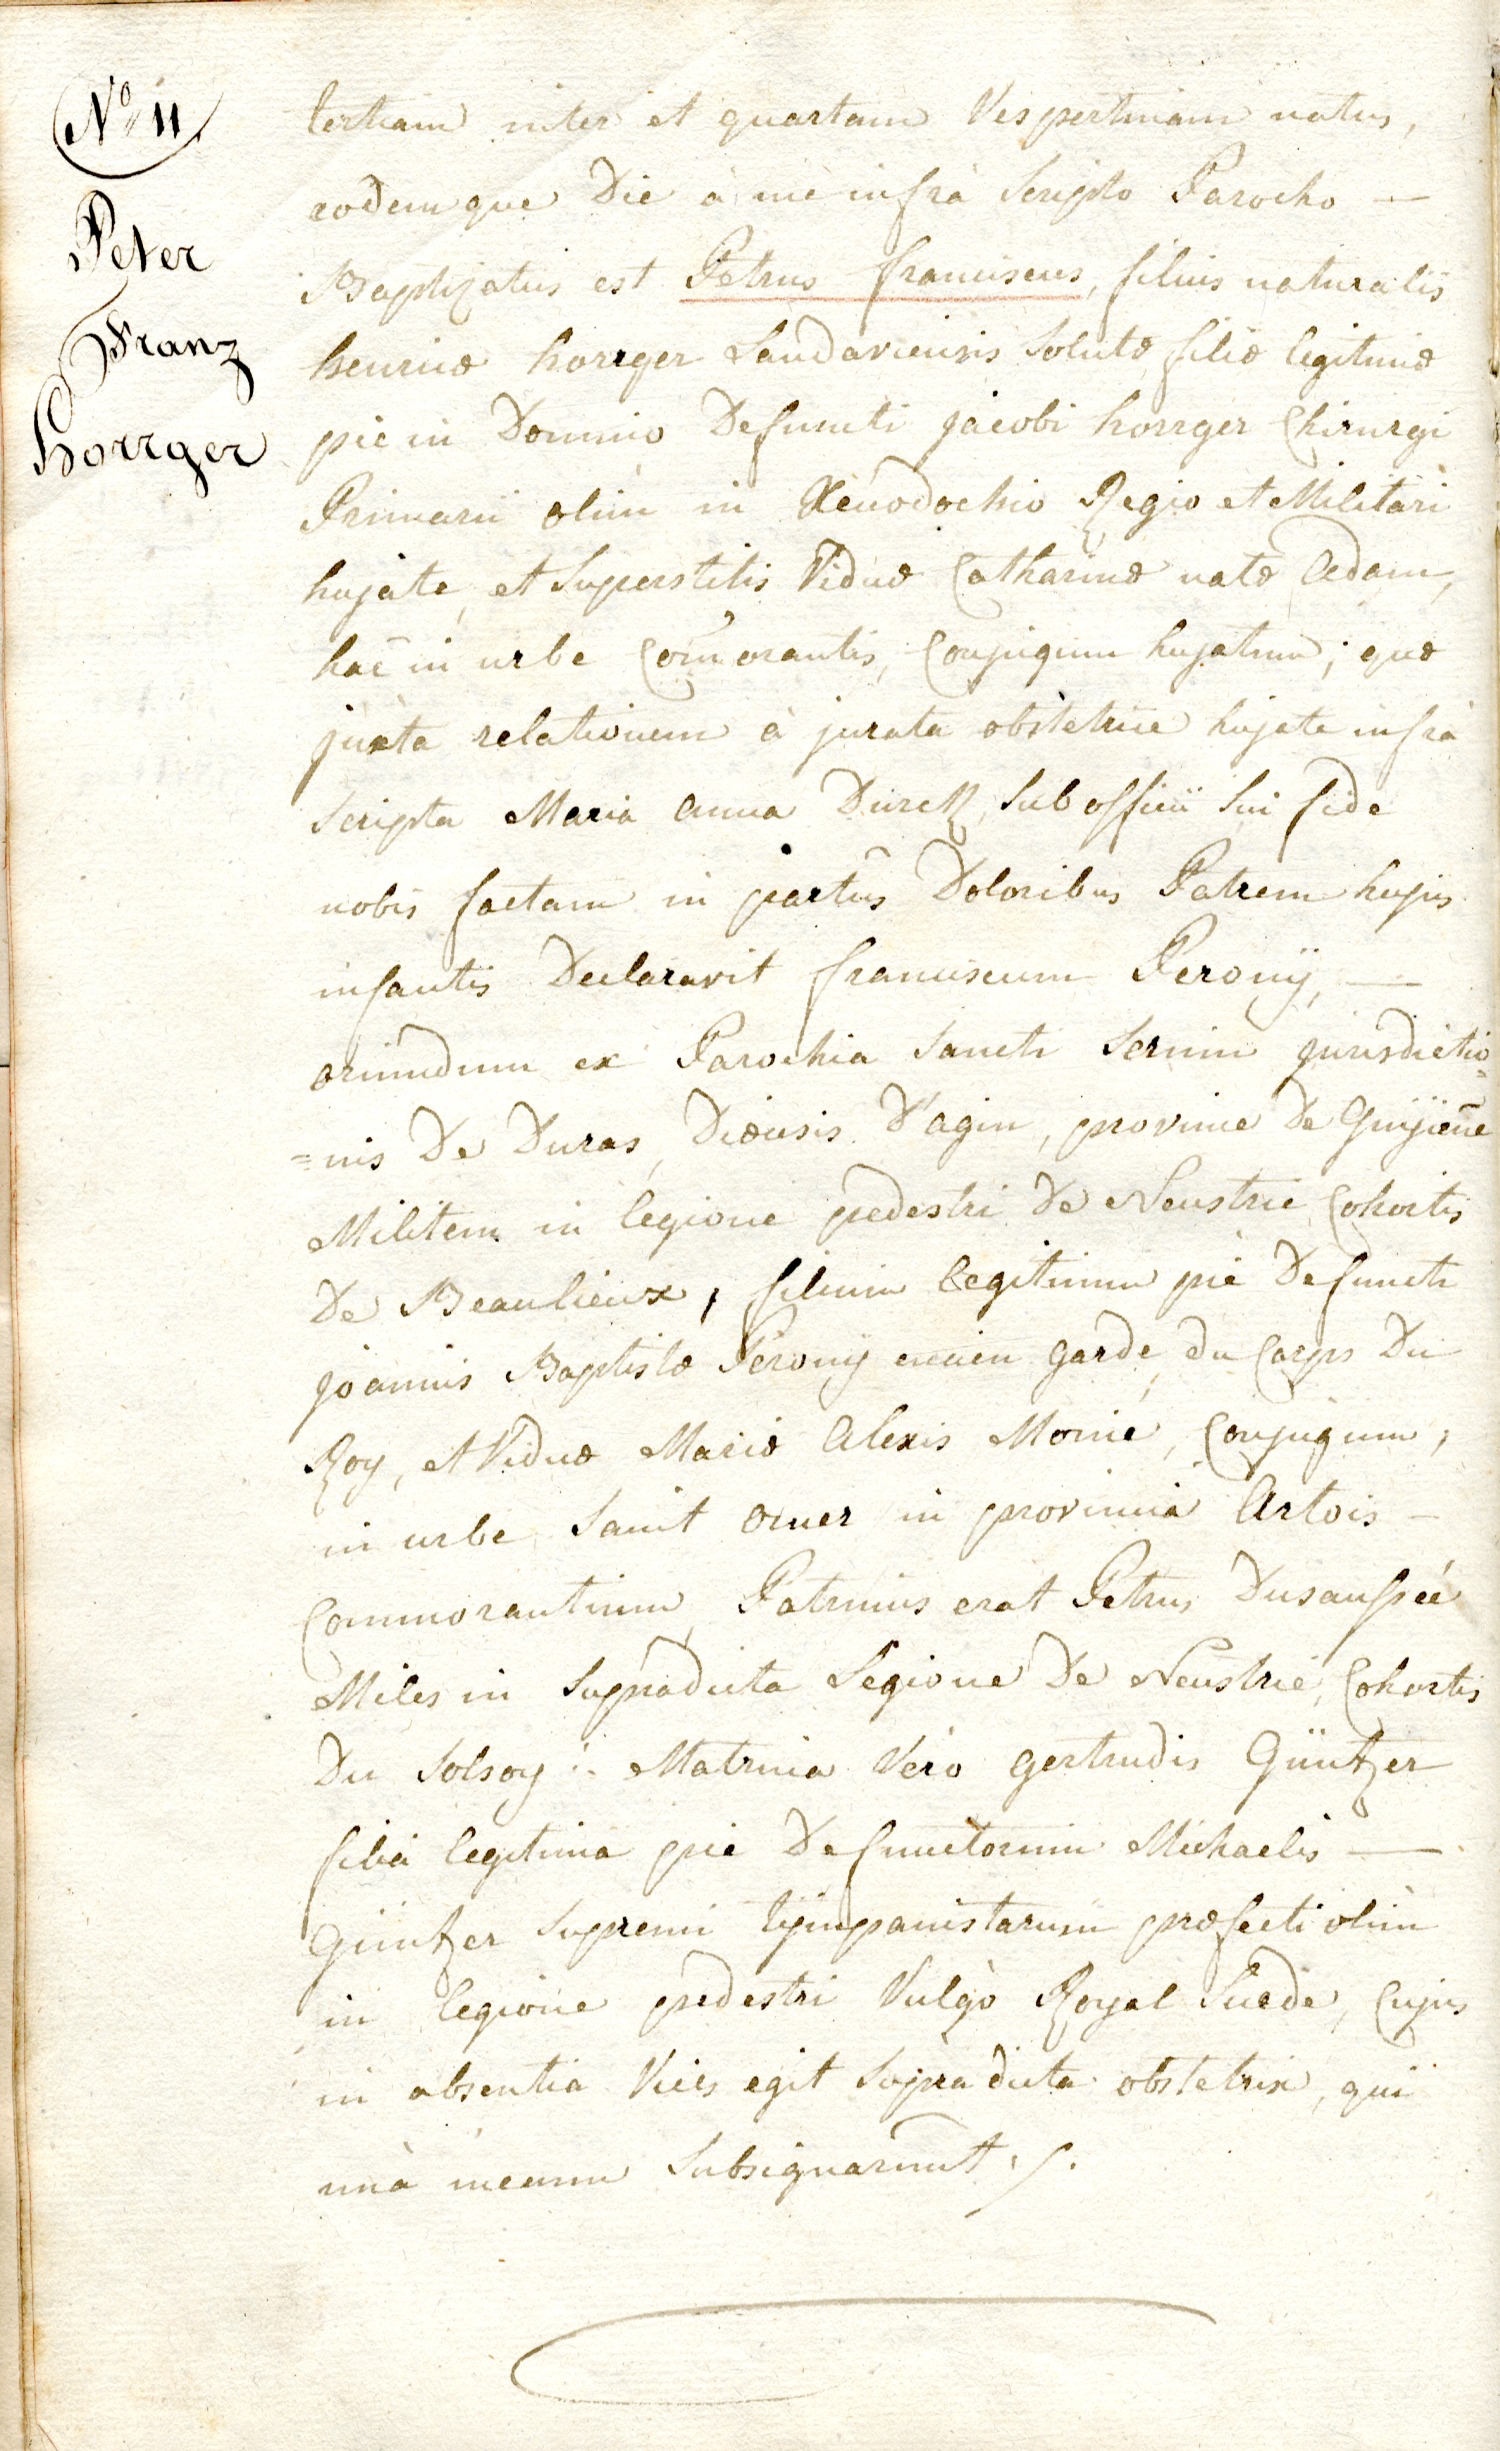 N° 11
Peter
Franz
Horrger
tertiam inter et quartam Vespertinam natus,
eodemque Die à me infrà Scripto Parocho —
Baptizatus est Petrus franciscus, filius naturalis
henricæ horrger Landaviensis Solutæ, filiæ legitimæ
pie in Domino Defuncti jacobi horrger Chirurgi
Primarii olim in Xenodochio Regio et Militari
hujate, et Superstitis Viduæ Catharinæ natæ Adam,
hac in urbe Com̄orantis, Conjugum hujatum; quæ
juxta relationem à jurata obstetrice hujate infrà
Scripta Maria Anna Dürck, Sub officii Sui fide
nobis factam in partûs Doloribus Patrem hujus
infantis Declaravit franciscum Perony, —
oriundum ex Parochia Sancti Sernin jurisdictio=
=nis De Duras, Diœcesis D'agin, province De Guyien̄e
Militem in legione pedestri De Neustrie Cohortis
De Beaulieux, filium legitimum piè Defuncti
joannis Baptistæ Perony ancien garde du Corps Du
Roy, et Viduæ Mariæ Alexis Morné, Conjugum,
in urbe Saint Omer in provinciâ Artois —
Commorantium, Patrinus erat Petrus Dusausseé
Miles in Supradicta Legione De Neustrie, Cohortis
Du Solsoy :. Matrina Verò gertrudis Güntzer
filia legitima pie Defunctorum Michaelis —
Güntzer Supremi tÿmpanistarum præfecti olim
in legione pedestri Vulgò Royal Suede, Cujus
in absentia Vices egit Supra dicta obstetrix, qui
unà mecum Subsignarunt ./.